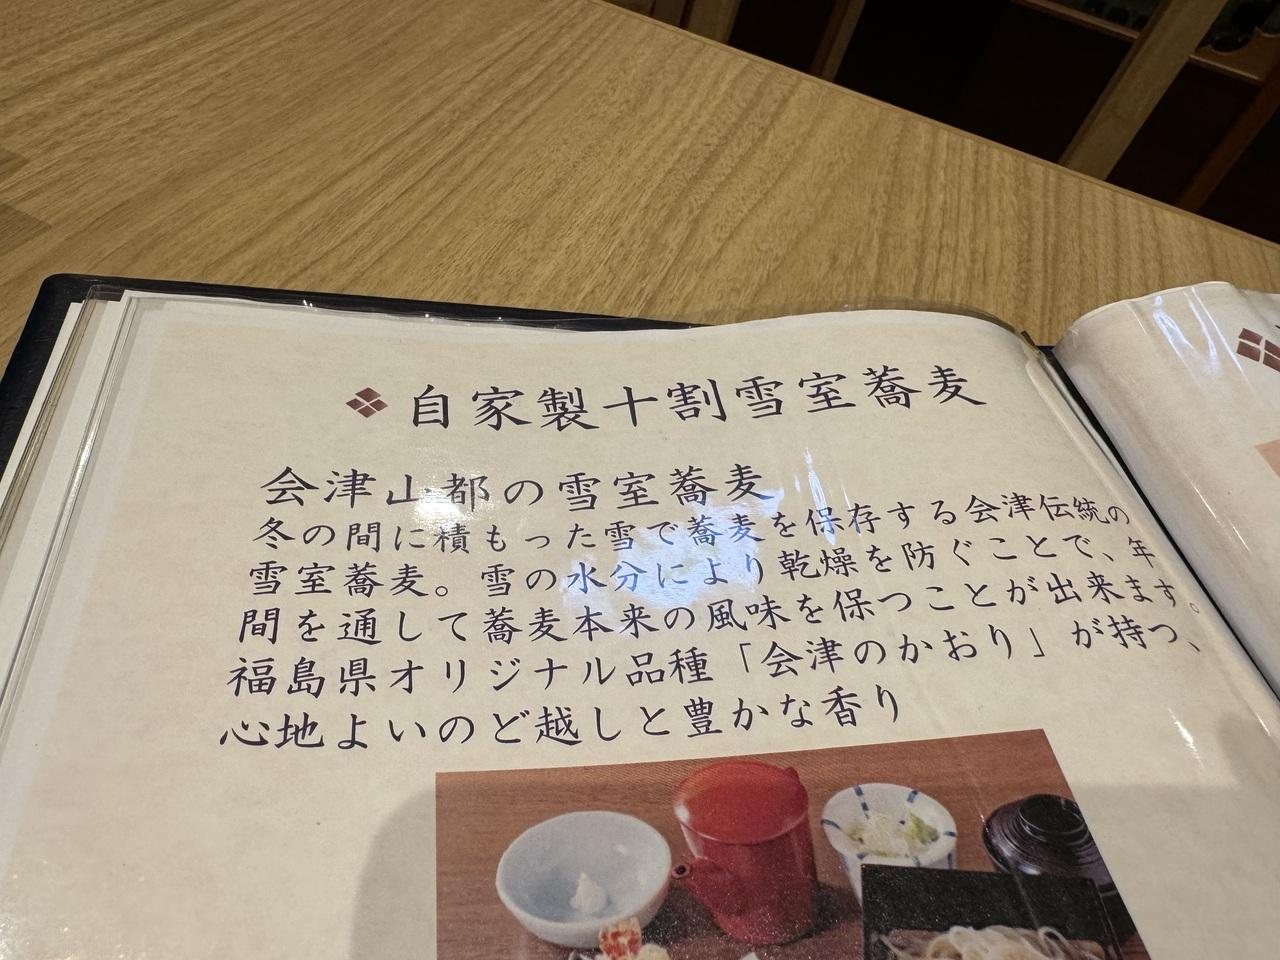 自家製十割雪室蕎麦
会津山都の雪室蕎麦
冬の間に積もった雪で蕎麦を保存する会津伝統の
雪室蕎麦。雪の水分により乾燥を防ぐことで、年
間を通して蕎麦本来の風味を保つことが出来ます。
福島県オリジナル品種「会津のかおり」が持つ、
心地よいのど越しと豊かな香り